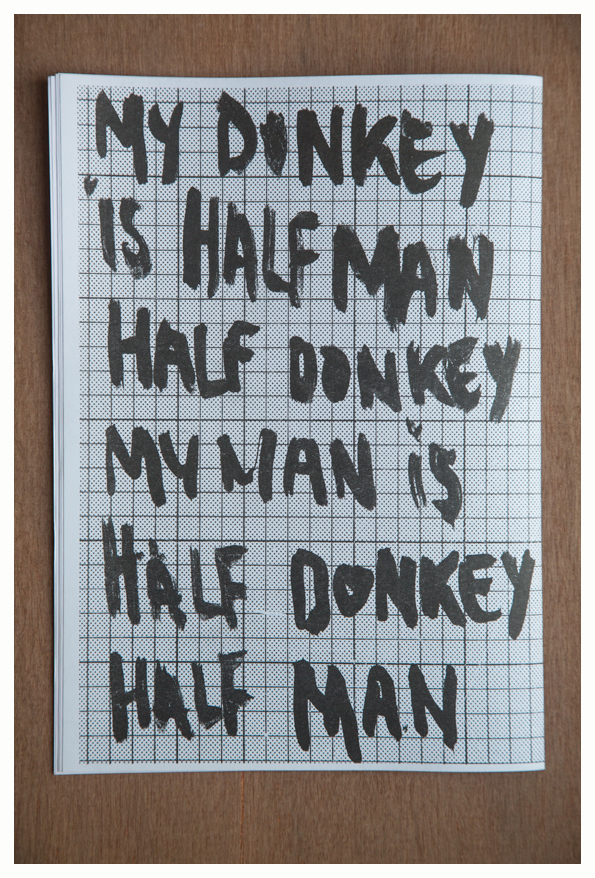 MY DONKEY
iS HALF MAN
HALF DONKEY
MY MAN iS
HALF DONKEY
HALF MAN